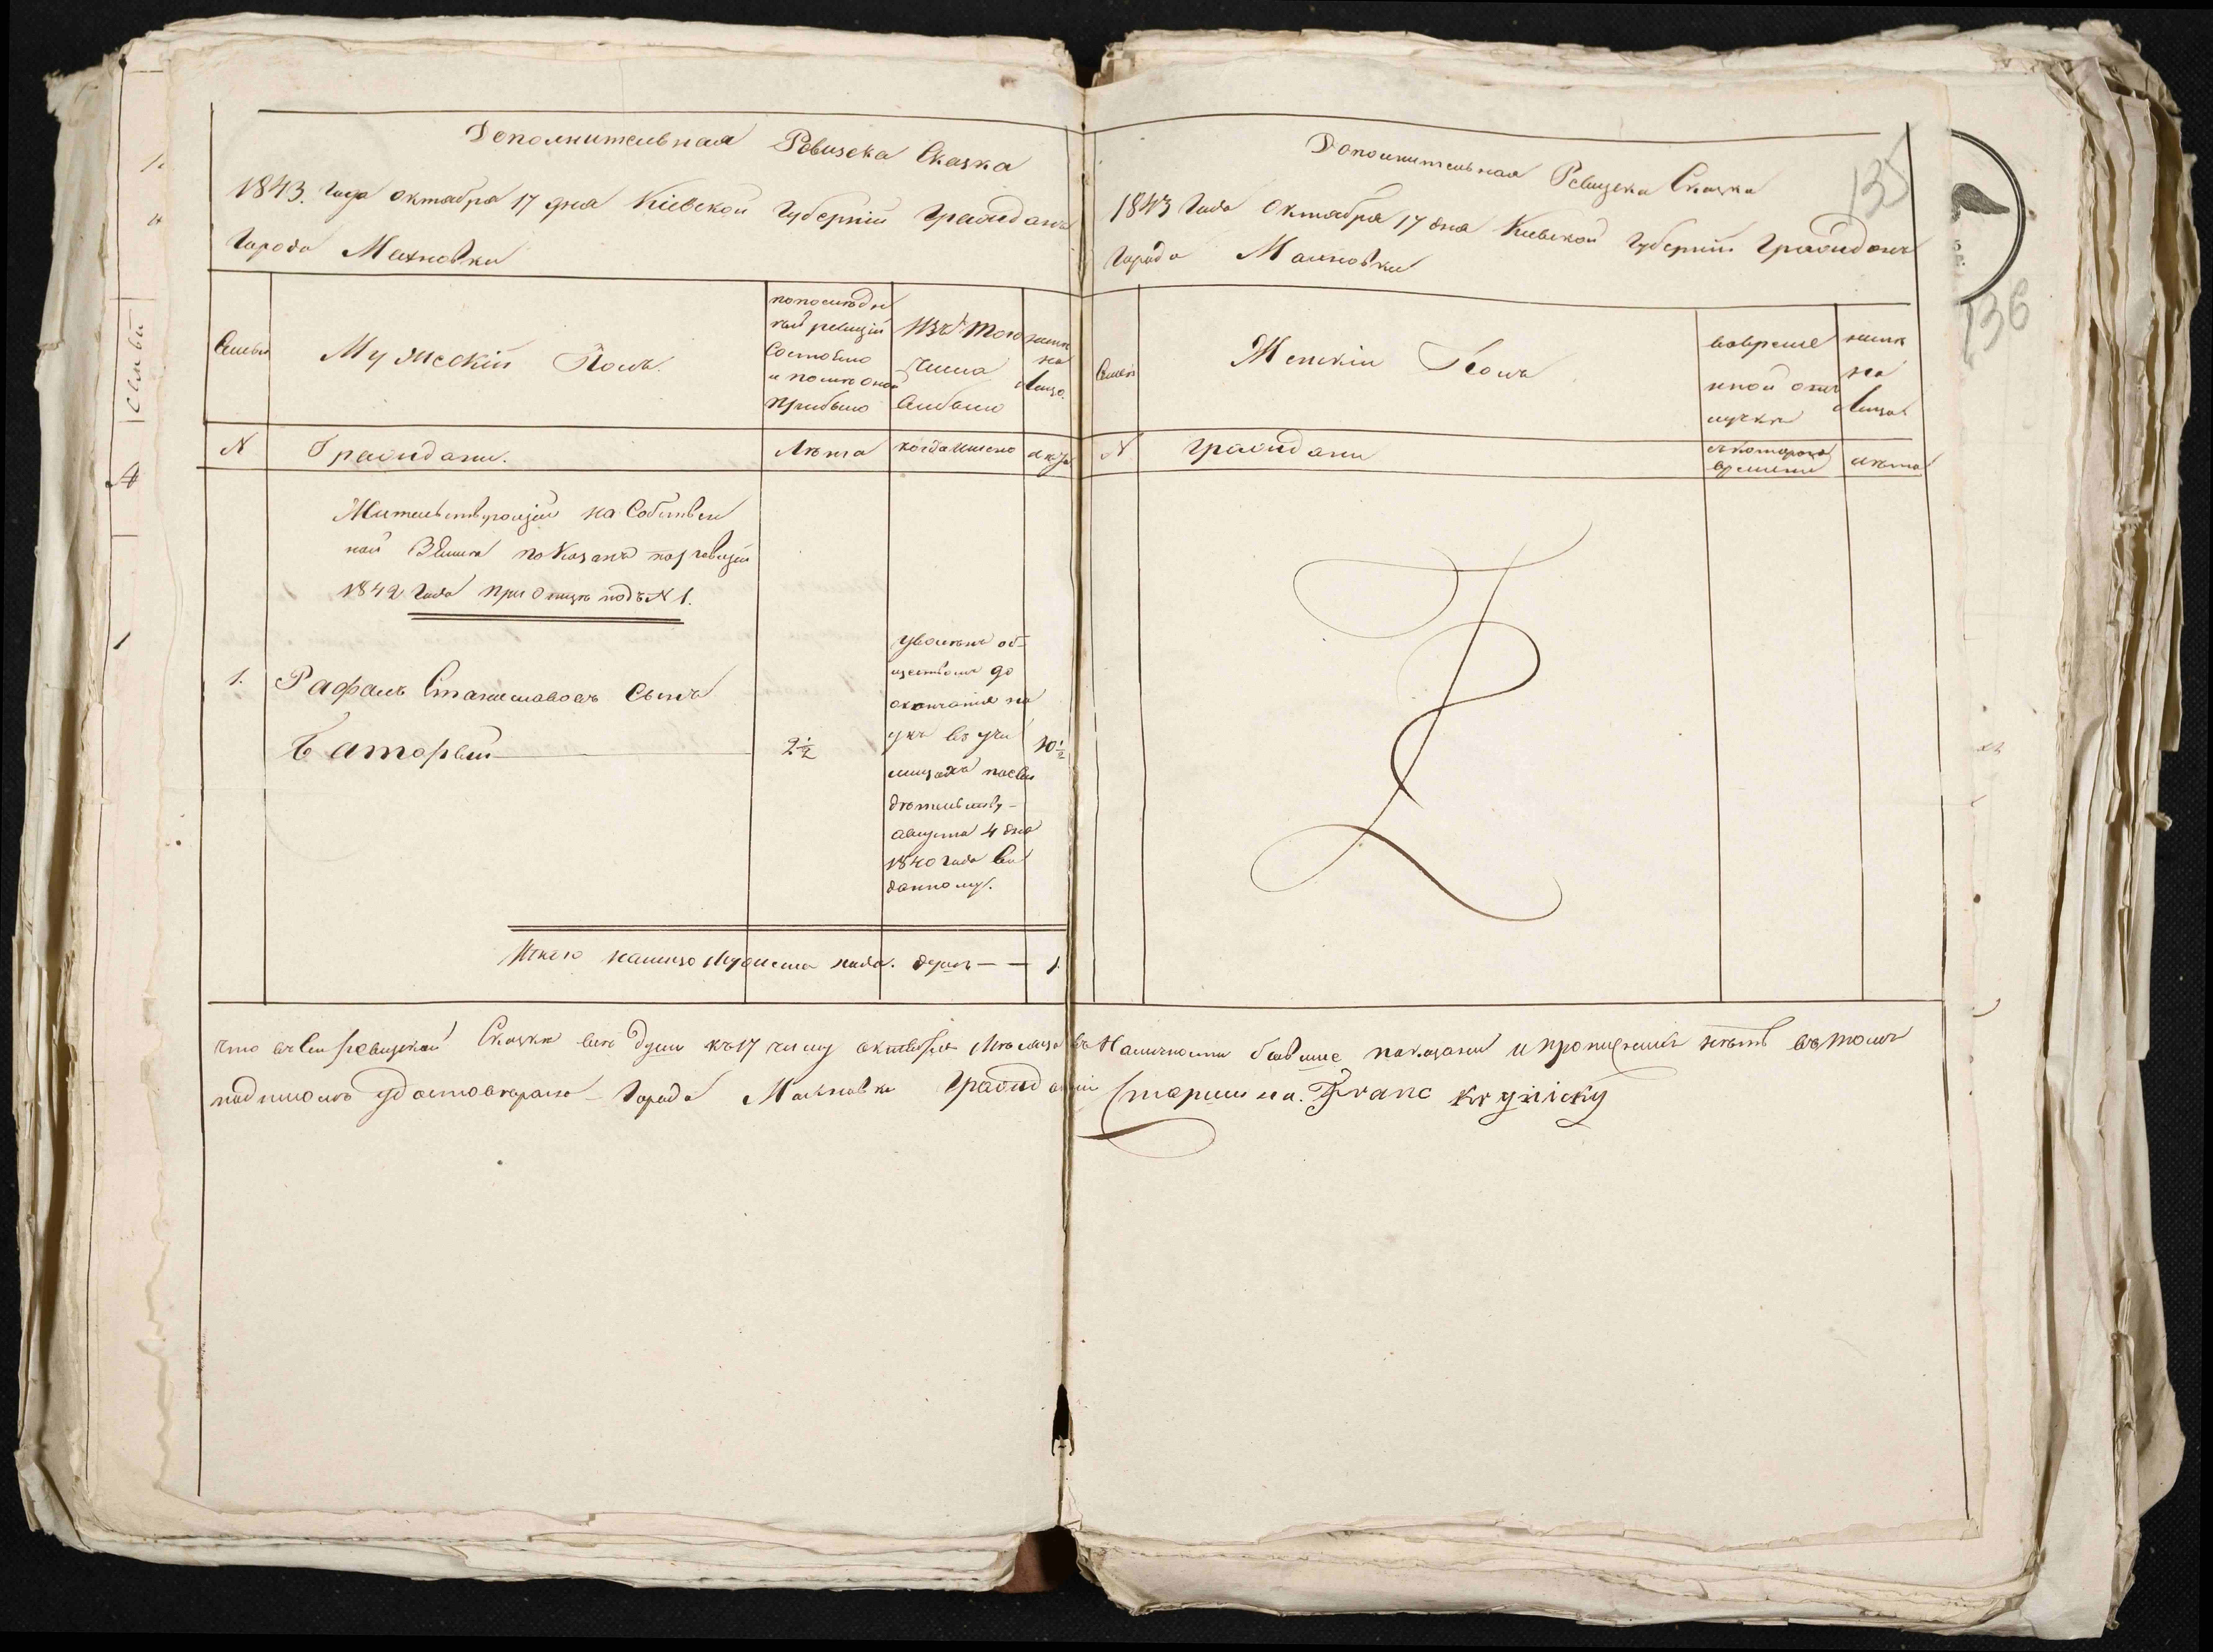 Дополнительная Ревизска Сказка
1843. Года октября 17 дня Кіевской Губерніи Граждань
Города Махновки
Семьи
Мужескій Полъ.
попоследн
ней ревизіи
Состояло
и после оной
прибыло
Изъ того
числа
Выбыло
ныне
на
Лицо.
N
Граждани.
Лета
когда именно
лета
Жительствующіи на Собствен
ной Земли по Казанъ по ревизіи
1842 Года при описи подъ N 1.
1.
Рафалъ Станиславовъ Сынъ
Баторый
2½
10½
уволенъ об-
ществомъ до
окончанія на
укъ въ учи
лищахъ посви
детельству-
августа 4 дня
1840 Года вы
данному.
Итого налицо Мужеска пола. душъ — — 1.
135
Дополнительная Ревизска Сказка
1843 Года Октября 17 дня Киевской Губерніи Гражданъ
Города Махновки
Семьи
Женскій Полъ
вовреме
нной отлу
лучки
ныне
на
Лицо
N
граждани
съ которого
времени
лета
что въ сей ревизской Сказки все души къ 17 числу октября Месяца въ Наличности бывшие показани и пропущенныхъ нетъ въ томъ
подписомъ удостоверяю – Города Махновки Граждански Старшина. Franc Kryżicky
136
Семьи